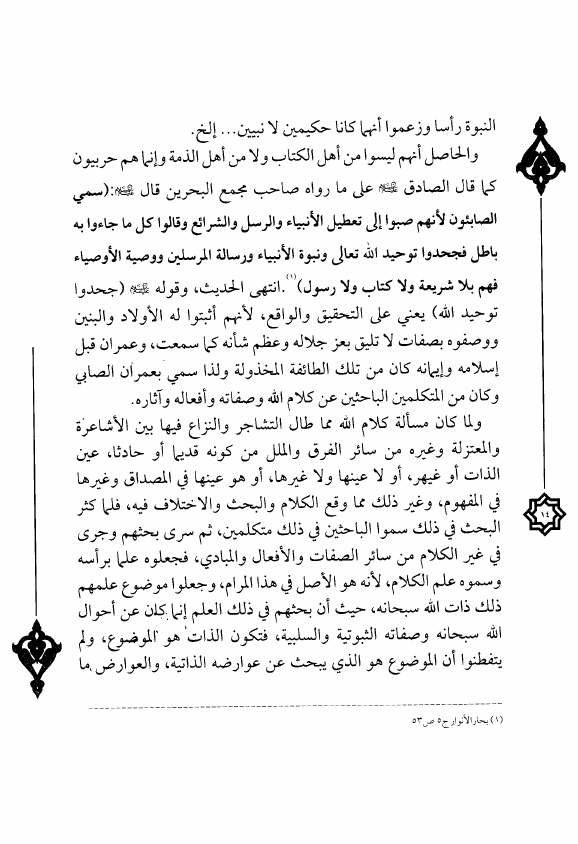 النبوة رأسا وزعموا أنهما كانا حكيمين لا نبيين... إلخ.
والحاصل أنهم ليسوا من أهل الكتاب ولا من أهل الذمة وإنما هم حربيون
كما قال الصادق ﷺ على ما رواه صاحب مجمع البحرين قال ﷺ:(سمي
الصابئون لأنهم صبوا إلى تعطيل الأنبياء والرسل والشرائع وقالوا كل ما جاءوا به
باطل فجحدوا توحيد الله تعالى ونبوة الأنبياء ورسالة المرسلين ووصية الأوصياء
فهم بلا شريعة ولا كتاب ولا رسول)(١).انتهى الحديث، وقوله ﷺ (جحدوا
توحيد الله) يعني على التحقيق والواقع، لأنهم أثبتوا له الأولاد والبنين
ووصفوه بصفات لا تليق بعز جلاله وعظم شأنه كما سمعت، وعمران قبل
إسلامه وإيمانه كان من تلك الطائفة المخذولة ولذا سمي بعمران الصابي
وكان من المتكلمين الباحثين عن كلام الله وصفاته وأفعاله وآثاره.
ولما كان مسألة كلام الله مما طال التشاجر والنزاع فيها بين الأشاعرة
والمعتزلة وغيره من سائر الفرق والملل من كونه قديما أو حادثا، عين
الذات أو غيهر، أو لا عينها ولا غيرها، أو هو عينها في المصداق وغيرها
في المفهوم، وغير ذلك مما وقع الكلام والبحث والاختلاف فيه، فلما كثر
البحث في ذلك سموا الباحثين في ذلك متكلمين، ثم سرى بحثهم وجرى
في غير الكلام من سائر الصفات والأفعال والمبادي، فجعلوه علما برأسه
وسموه علم الكلام، لأنه هو الأصل في هذا المرام، وجعلوا موضوع علمهم
ذلك ذات الله سبحانه، حيث أن بحثهم في ذلك العلم إنما كان عن أحوال
الله سبحانه وصفاته الثبوتية والسلبية، فتكون الذات هو الموضوع، ولم
يتفطنوا أن الموضوع هو الذي يبحث عن عوارضه الذاتية، والعوارض ما
(١) بحار الأنوار ج٥ ص٥٣
١٤